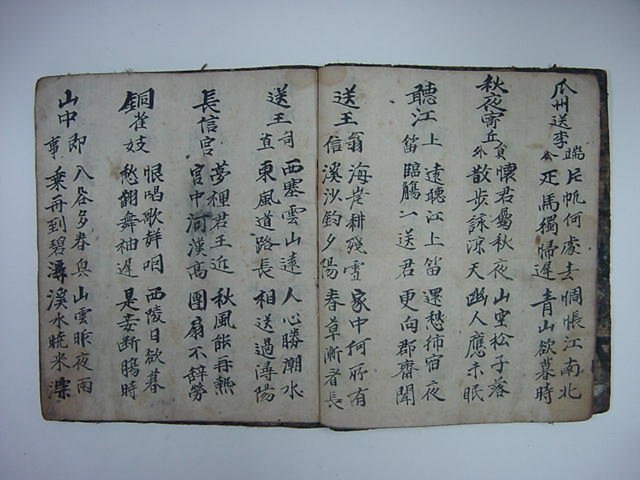 瓜州送李端公
片帆何處去惆悵江南北
匹馬獨帰遲青山欲暮時
秋夜寄丘員外
懷君屬秋夜山空松子落
散步詠涼天幽人應未眠
聽江上笛
遠聽江上笛還愁獨宿夜
臨觴一送君更向郡齋聞
送王翁信
海岸耕殘雪家中何所有
溪沙釣夕陽春草漸看長
送王司直
西塞雲山遠人心勝潮水
東風道路長相送過潯陽
長信宮
夢裡君王近秋風能再熱
宮中河漢高團扇不辞勞
銅雀妓
恨唱歌聲咽西陵日欲暮
愁翻舞袖遲是妾斷腸時
山中即事
入谷多春興山雲昨夜雨
乘舟到碧潯溪水曉来深